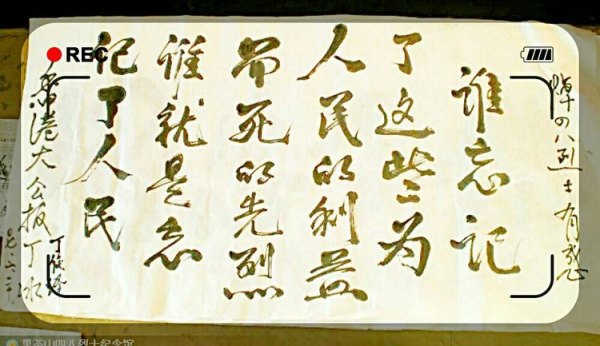 REC
悼四八烈士有感
谁忘记
了这些为
人民的利益
而死的先烈
谁就是忘
记了人民
香港大公报丁
黑茶山四八烈士纪念馆